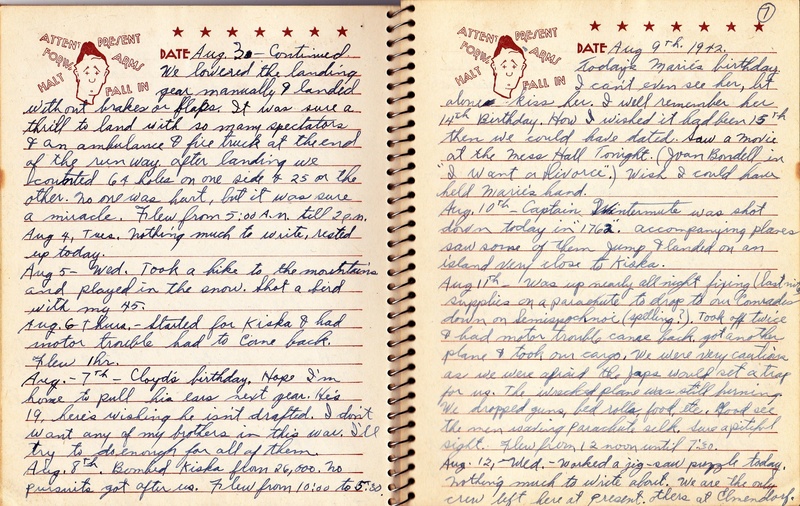 ATTENT PRESENT
FORM ARMS
HALT FALL IN
DATE Aug. 3 - Continued
We lowered the landing
gear manually & landed
without brakes or flaps. It was sure a
thrill to land with so many spectators
& an ambulance & fire truck at the end
of the runway. After landing we
counted 64 holes on one side & 25 on the
other. No one was hurt, but it was sure
a miracle. Flew from 5:00 A.M. till 2 p.m.
Aug 4, Tues. Nothing much to write, rested
up today.
Aug 5 - Wed. Took a hike to the mountains
and played in the snow. Shot a bird
with my 45.
Aug. 6 Thurs. - Started for Kiska & had
motor trouble had to come back.
Flew 1 hr.
Aug. - 7th - Cloyd's birthday. Hope I'm
home to pull his ears next year. He's
19, here's wishing he isn't drafted. I don't
want any of my brothers in this war. I'll
try to do enough for all of them.
Aug. 8th. Bombed Kiska from 26,000. No
pursuits got after us. Flew from 10:00 to 5:30.
7
ATTENT PRESENT
FORM ARMS
HALT FALL IN
DATE Aug 9th. 1942.
Today's Marie's birthday.
I can't even see her, let
alone kiss her. I well remember her
14th Birthday. How I wished it had been 15th
then we could have dated. Saw a movie
at the Mess Hall Tonight. (Joan Bondell in
"I want a divorce".) Wish I could have
held Marie's hand.
Aug. 10th - Captain Wintermute was shot
down today in 1762. accompanying planes
saw some of them jump & landed on an
island very close to Kiska.
Aug 11th - Was up nearly all night fixing (last nite)
supplies on a parachute to drop to our comrades
down on Semisopchnoi (spelling?). Took off twice
& had motor trouble came back, got another
plane & took our cargo. We were very cautious
as we were afraid the Japs would set a trap
for us. The wrecked plane was still burning.
We dropped guns, bed rolls, food, etc. Could see
the men waving Parachute silk. Sure a pitiful
sight. Flew from 12 noon until 7:30.
Aug. 12, - Wed. - Worked a jig-saw puzzle today.
Nothing much to write about. We are the only
crew left here at present. Others at Elmendorf.